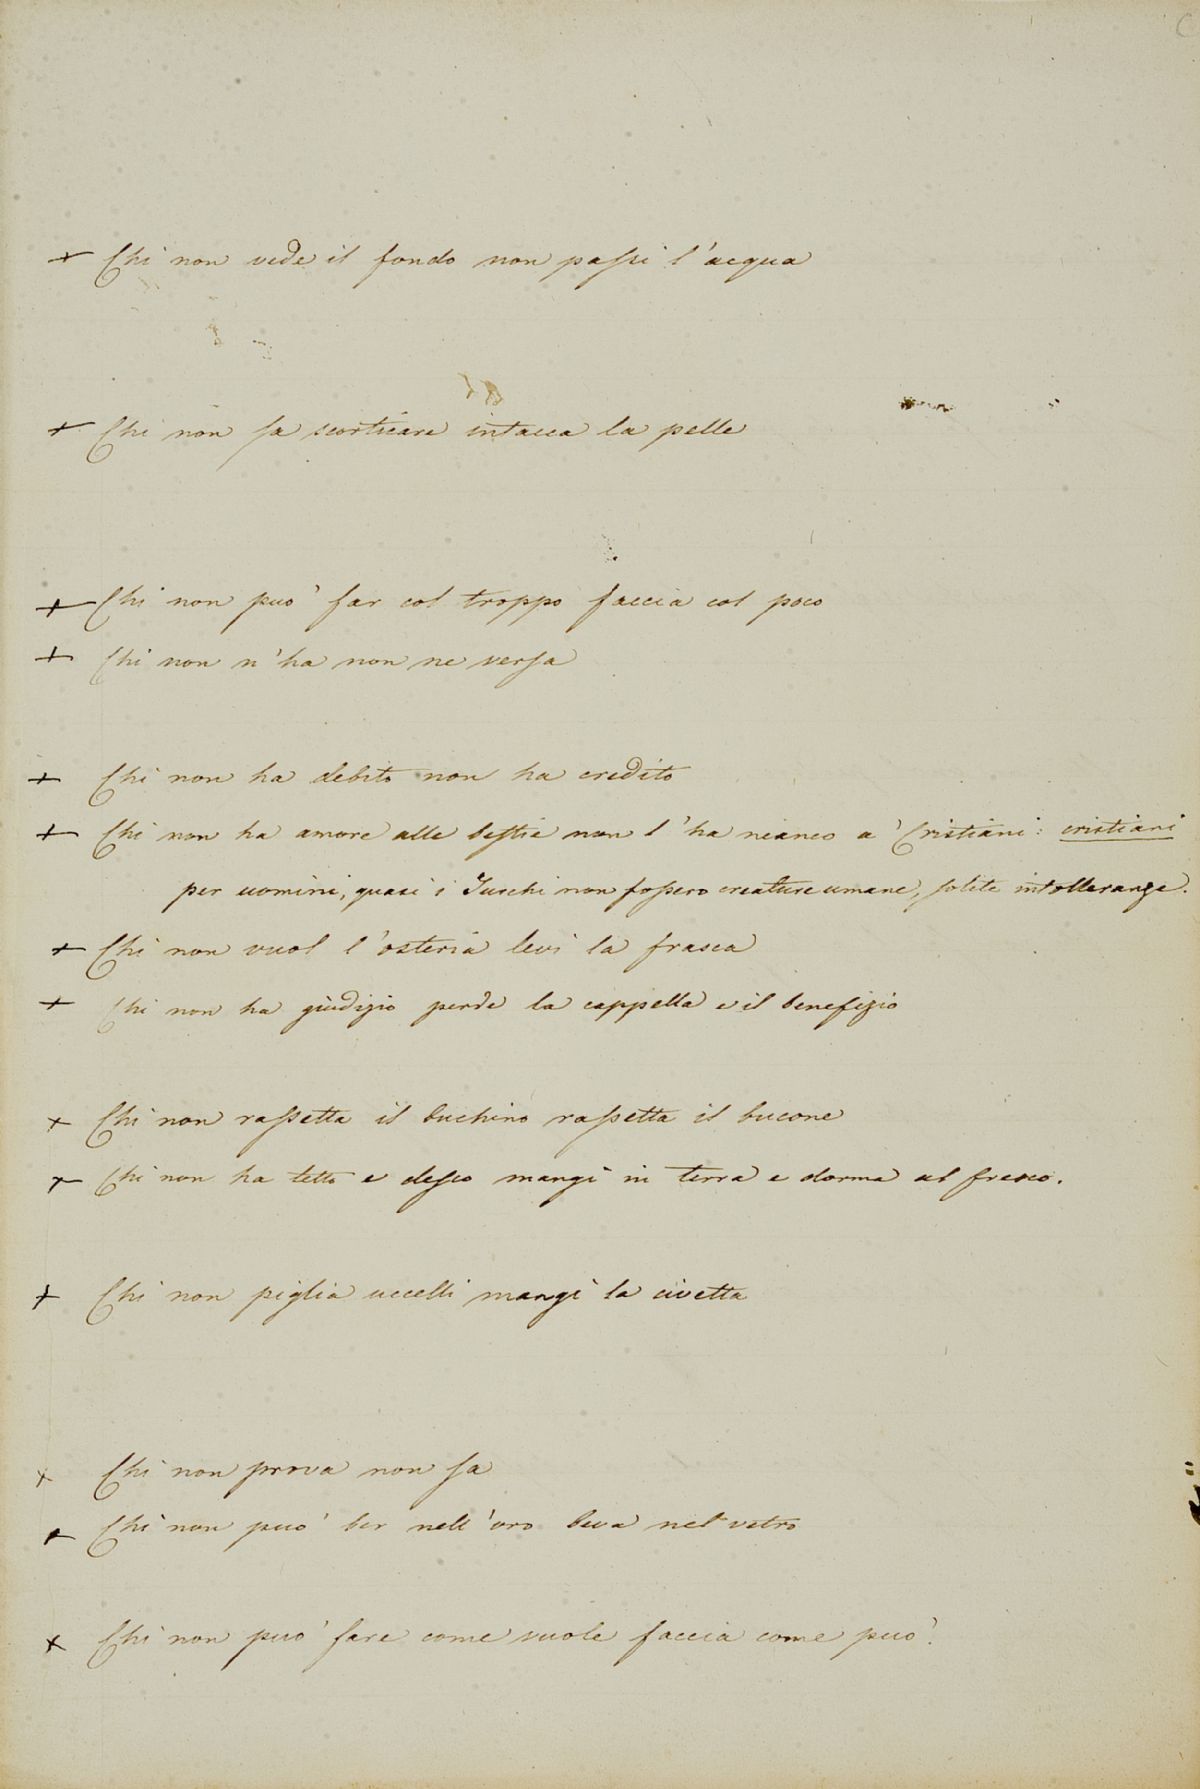 C
+ Chi non vede il fondo non passi l'acqua
+ Chi non sa scorticare intacca la pelle
+ Chi non può far col troppo faccia col poco
+ Chi non n'ha non ne versa
+ Chi non ha debito non ha credito
+ Chi non ha amore alle bestie non l'ha neanco a' Cristiani: cristiani
per uomini, quasi i Turchi non fossero creature umane, solite intolleranze.
+ Chi non vuol l'osteria levi la frasca
+ Chi non ha giudizio perde la cappella e il benefizio
+ Chi non rassetta il buchino rassetta il bucone
+ Chi non ha tetto e desco mangi in terra e dorma al fresco.
+ Chi non piglia uccelli mangi la civetta
+ Chi non prova non sa
+ Chi non può ber nell'oro beva nel vetro
+ Chi non può fare come vuole faccia come può.